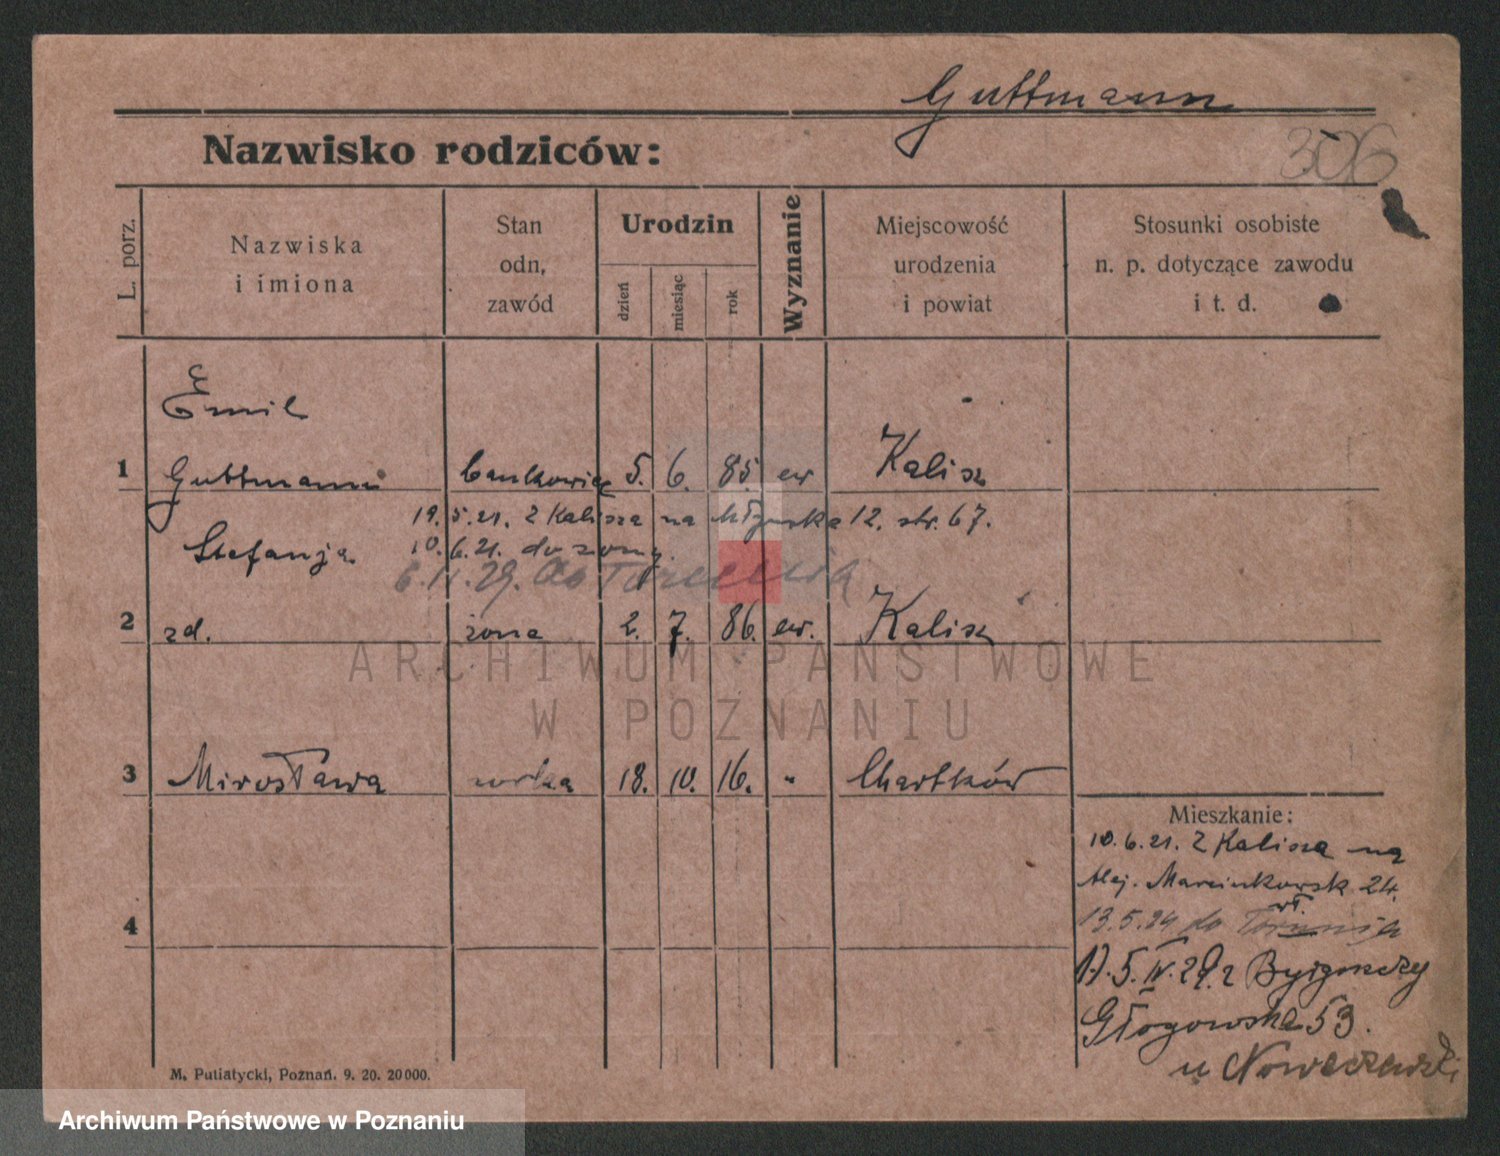 Guttmann
306
Nazwisko rodziców:
L. porz.
Nazwiska
i imiona
Stan
odn,
zawód
Urodzin
dzień
miesiąc
rok
Wyznanie
Miejscowość
urodzenia
i powiat
Stosunki osobiste
n. p. dotyczące zawodu
i t. d.
Emil
1 Guttmann bankowiec 5. 6. 85 ew Kalisz
19. 5. 21. z Kalisza na 12. str. 67.
Stefanja 10. 6. 21. do żony.
6.11.29. do
2 zd. żona 2. 7. 86. ew. Kalisz
ARCHIWUM PAŃSTWOWE
W POZNANIU
3 Mirosława córka 18. 10. 16. "
Mieszkanie:
10.6.21. z Kalisza na
Alej. Marcinkowsk 24.
13.5.24 do Torunia
5. IV. 29. z Bydgoszczy
Głogowska 53.
u
4
M. Putiatycki, Poznań. 9. 20. 20000.
Archiwum Państwowe w Poznaniu